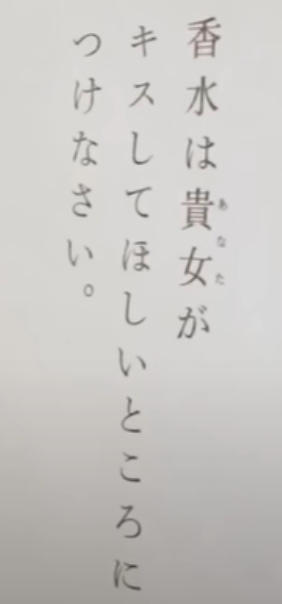 香水は貴女が
キスしてほしいところに
つけなさい。
あなた